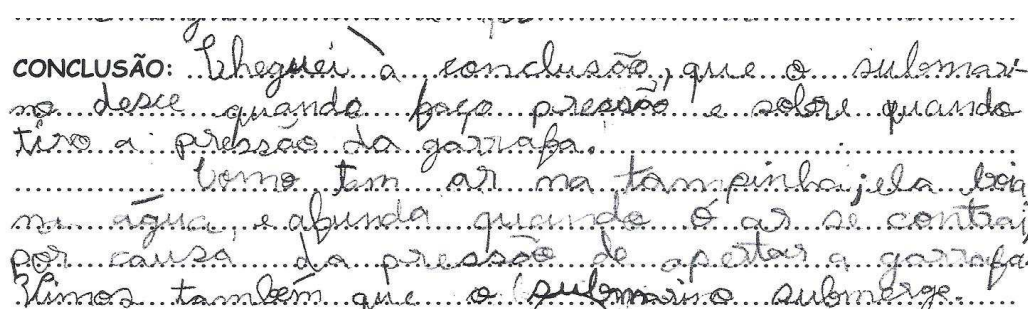 CONCLUSÃO: Cheguei à conclusão, que o submari-
no desce quando faço pressão e sobre quando
tiro a pressão da garrafa.
Como tem ar na tampinha, ela boia
na água, e afunda quando o ar se contrai,
por causa da pressão de apertar a garrafa.
Vimos também que o submarino submerge.